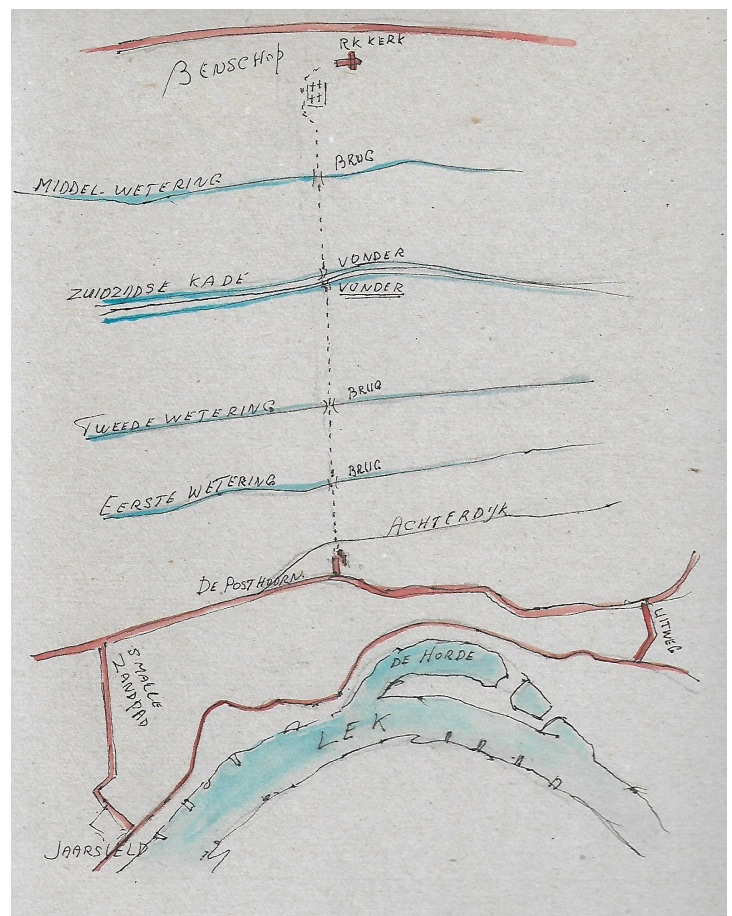 RK KERK
BENSCHOP
BRUG
MIDDEL-WETERING
VONDER
ZUIDZIJDSE KADE
VONDER
BRUG
TWEEDE WETERING
BRUG
EERSTE WETERING
ACHTERDIJK
DE POSTHOORN.
UITWEG
SMALLE
ZANDPAD
DE HORDE
LEK
JAARSVELD